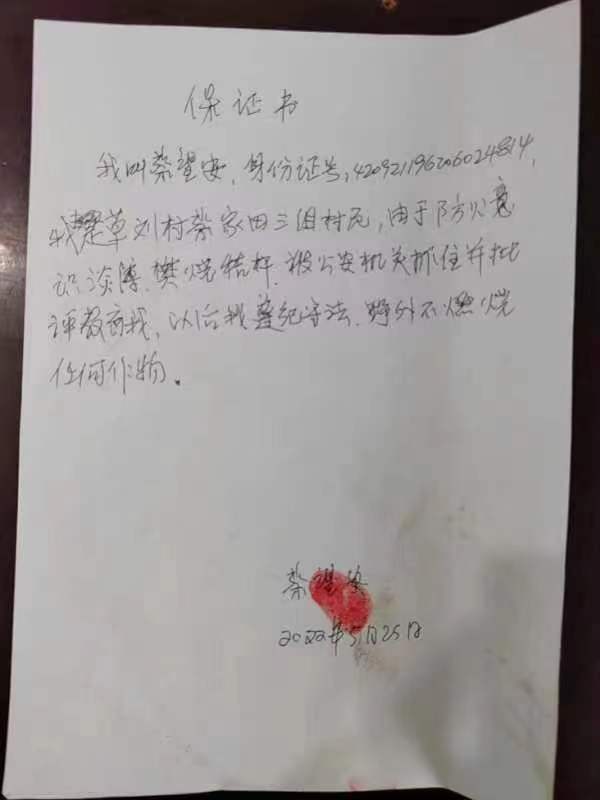 保证书
我叫蔡望安,身份证号,420921196206024814,
我是草刘村蔡家田三组村民,由于防火意
识淡薄,樊烧秸秆,被公安机关抓住并批
评教育我,以后我遵纪守法,野外不燃烧
任何作物。
蔡望安
2022年5月25日